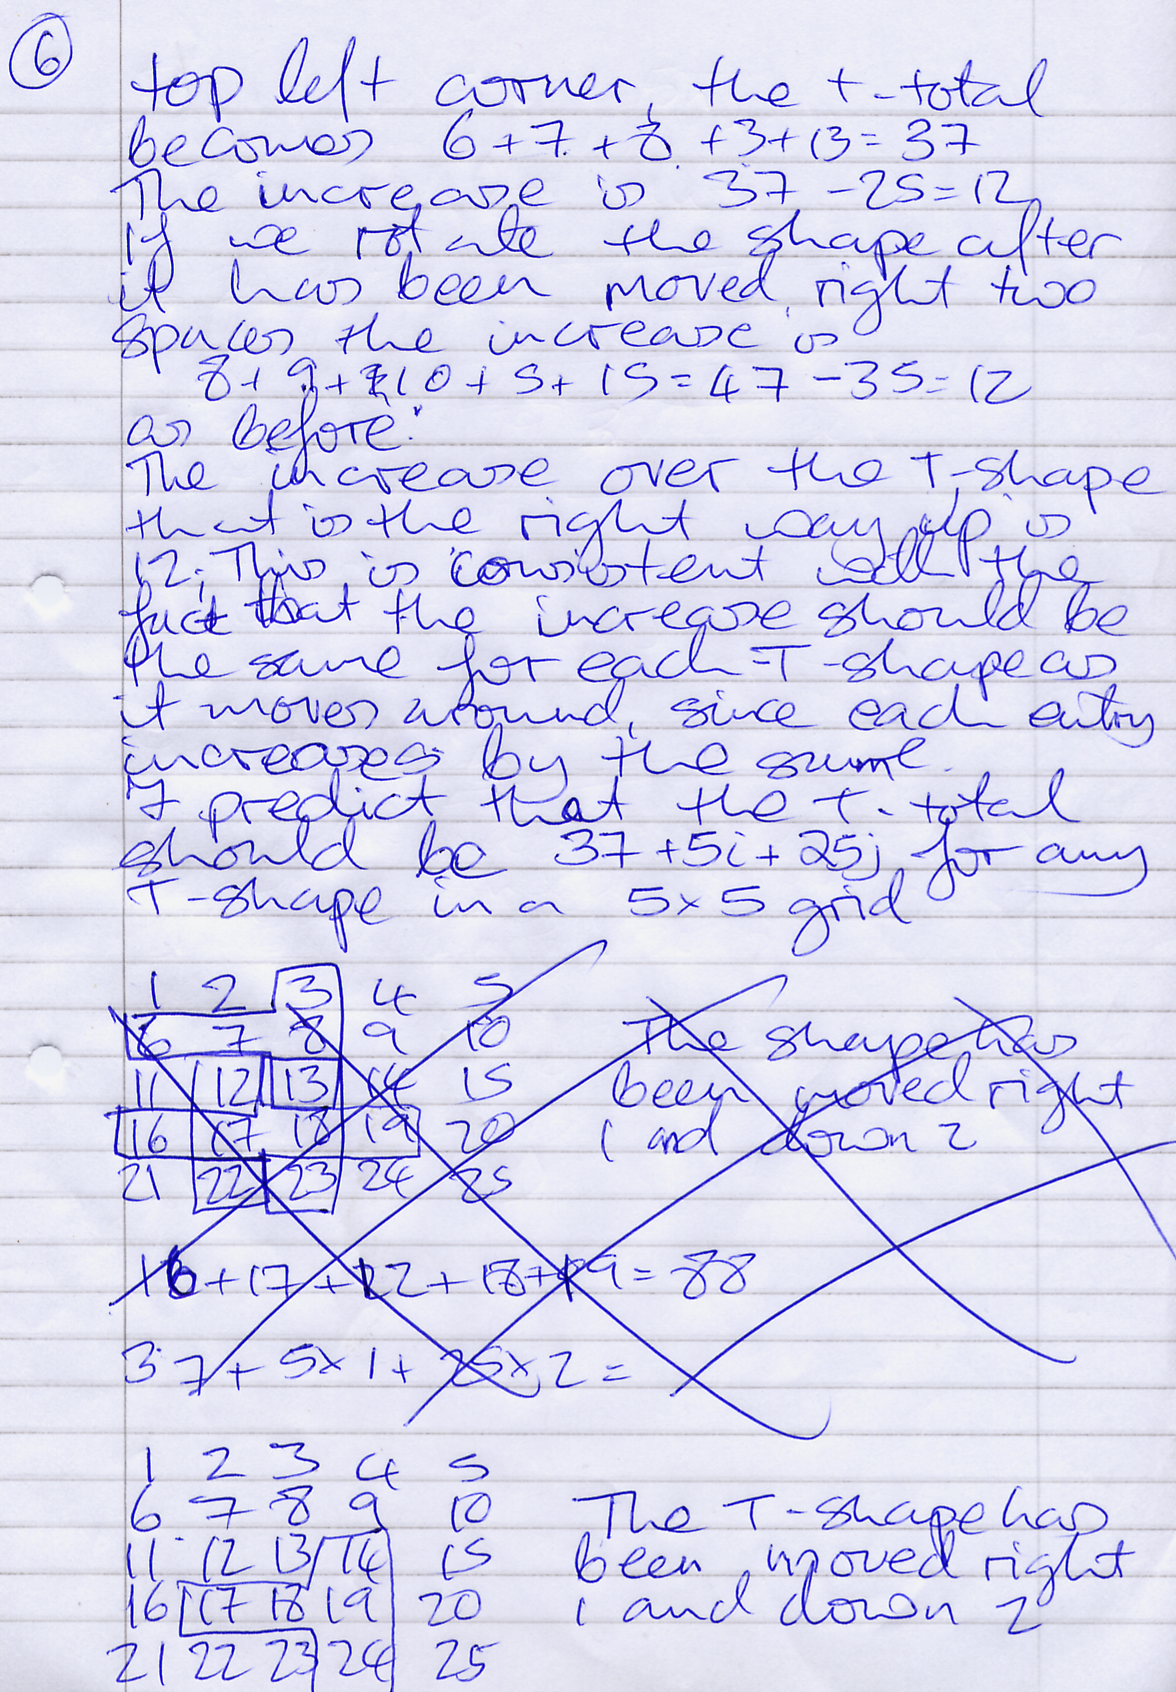 6
top left corner, the t-total
becomes 6+7+8+3+13=37
The increase is 37-25=12
If we rotate the shape after
it has been moved right two
spaces the increase is
8+9+10+5+15=47-35=12
as before.
The increase over the T-shape
that is the right way up is
12. This is consistent with the
fact that the increase should be
the same for each T-shape as
it moves around, since each entry
increases by the same.
I predict that the T-total
should be 37+5i+25j for any
T-shape in a 5×5 grid
1 2 3 4 5
6 7 8 9 10 The shape has
11 12 13 14 15 been moved right
16 17 18 19 20 1 and down 2
21 22 23 24 25
16+17+22+18+19=88
37+5×1+25×2=
1 2 3 4 5
6 7 8 9 10 The T-shape has
11 12 13 14 15 been moved right
16 17 18 19 20 1 and down 2
21 22 23 24 25